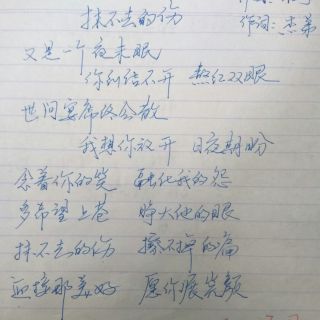 抹不去的伤
作词：杰弟
又是一个夜未眠
你纠结不开 熬红双眼
世间宴席终会散
我想你放开 日夜期盼
念着你的笑 融化我的怨
多希望上苍 睁大他的眼
抹不去的伤 擦不掉的痛
迎接那美好 愿你展笑颜